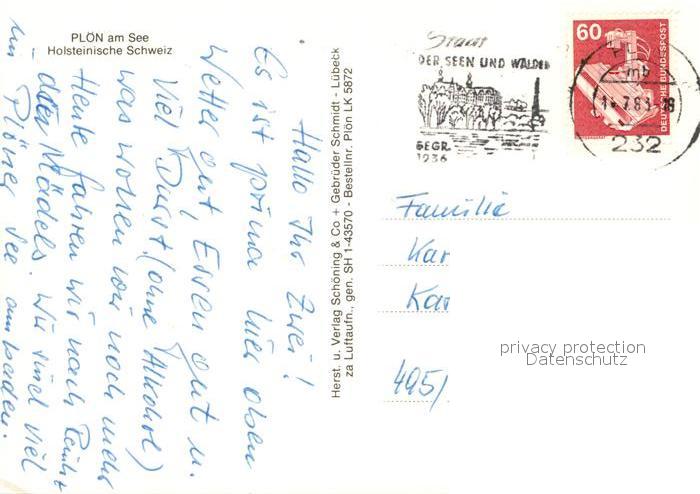 PLÖN am See
Holsteinische Schweiz
Hallo Ihr Zwei!
Es ist prima hier oben
Wetter gut, Essen gut u.
viel Durst. (ohne Alkohol)
was wollen wir noch mehr
Heute fahren wir nach
Wir sind viel
im Plöner See am baden.
Herst. u. Verlag Schöning & Co + Gebrüder Schmidt - Lübeck
za Luftaufn., gen. SH 1-43570 - Bestellnr. Plön LK 5872
Stadt
DER SEEN UND WÄLDER
GEGR.
1236
60
DEUTSCHE BUNDESPOST
mb
232
Familie
Kar
Kar
495
privacy protection
Datenschutz